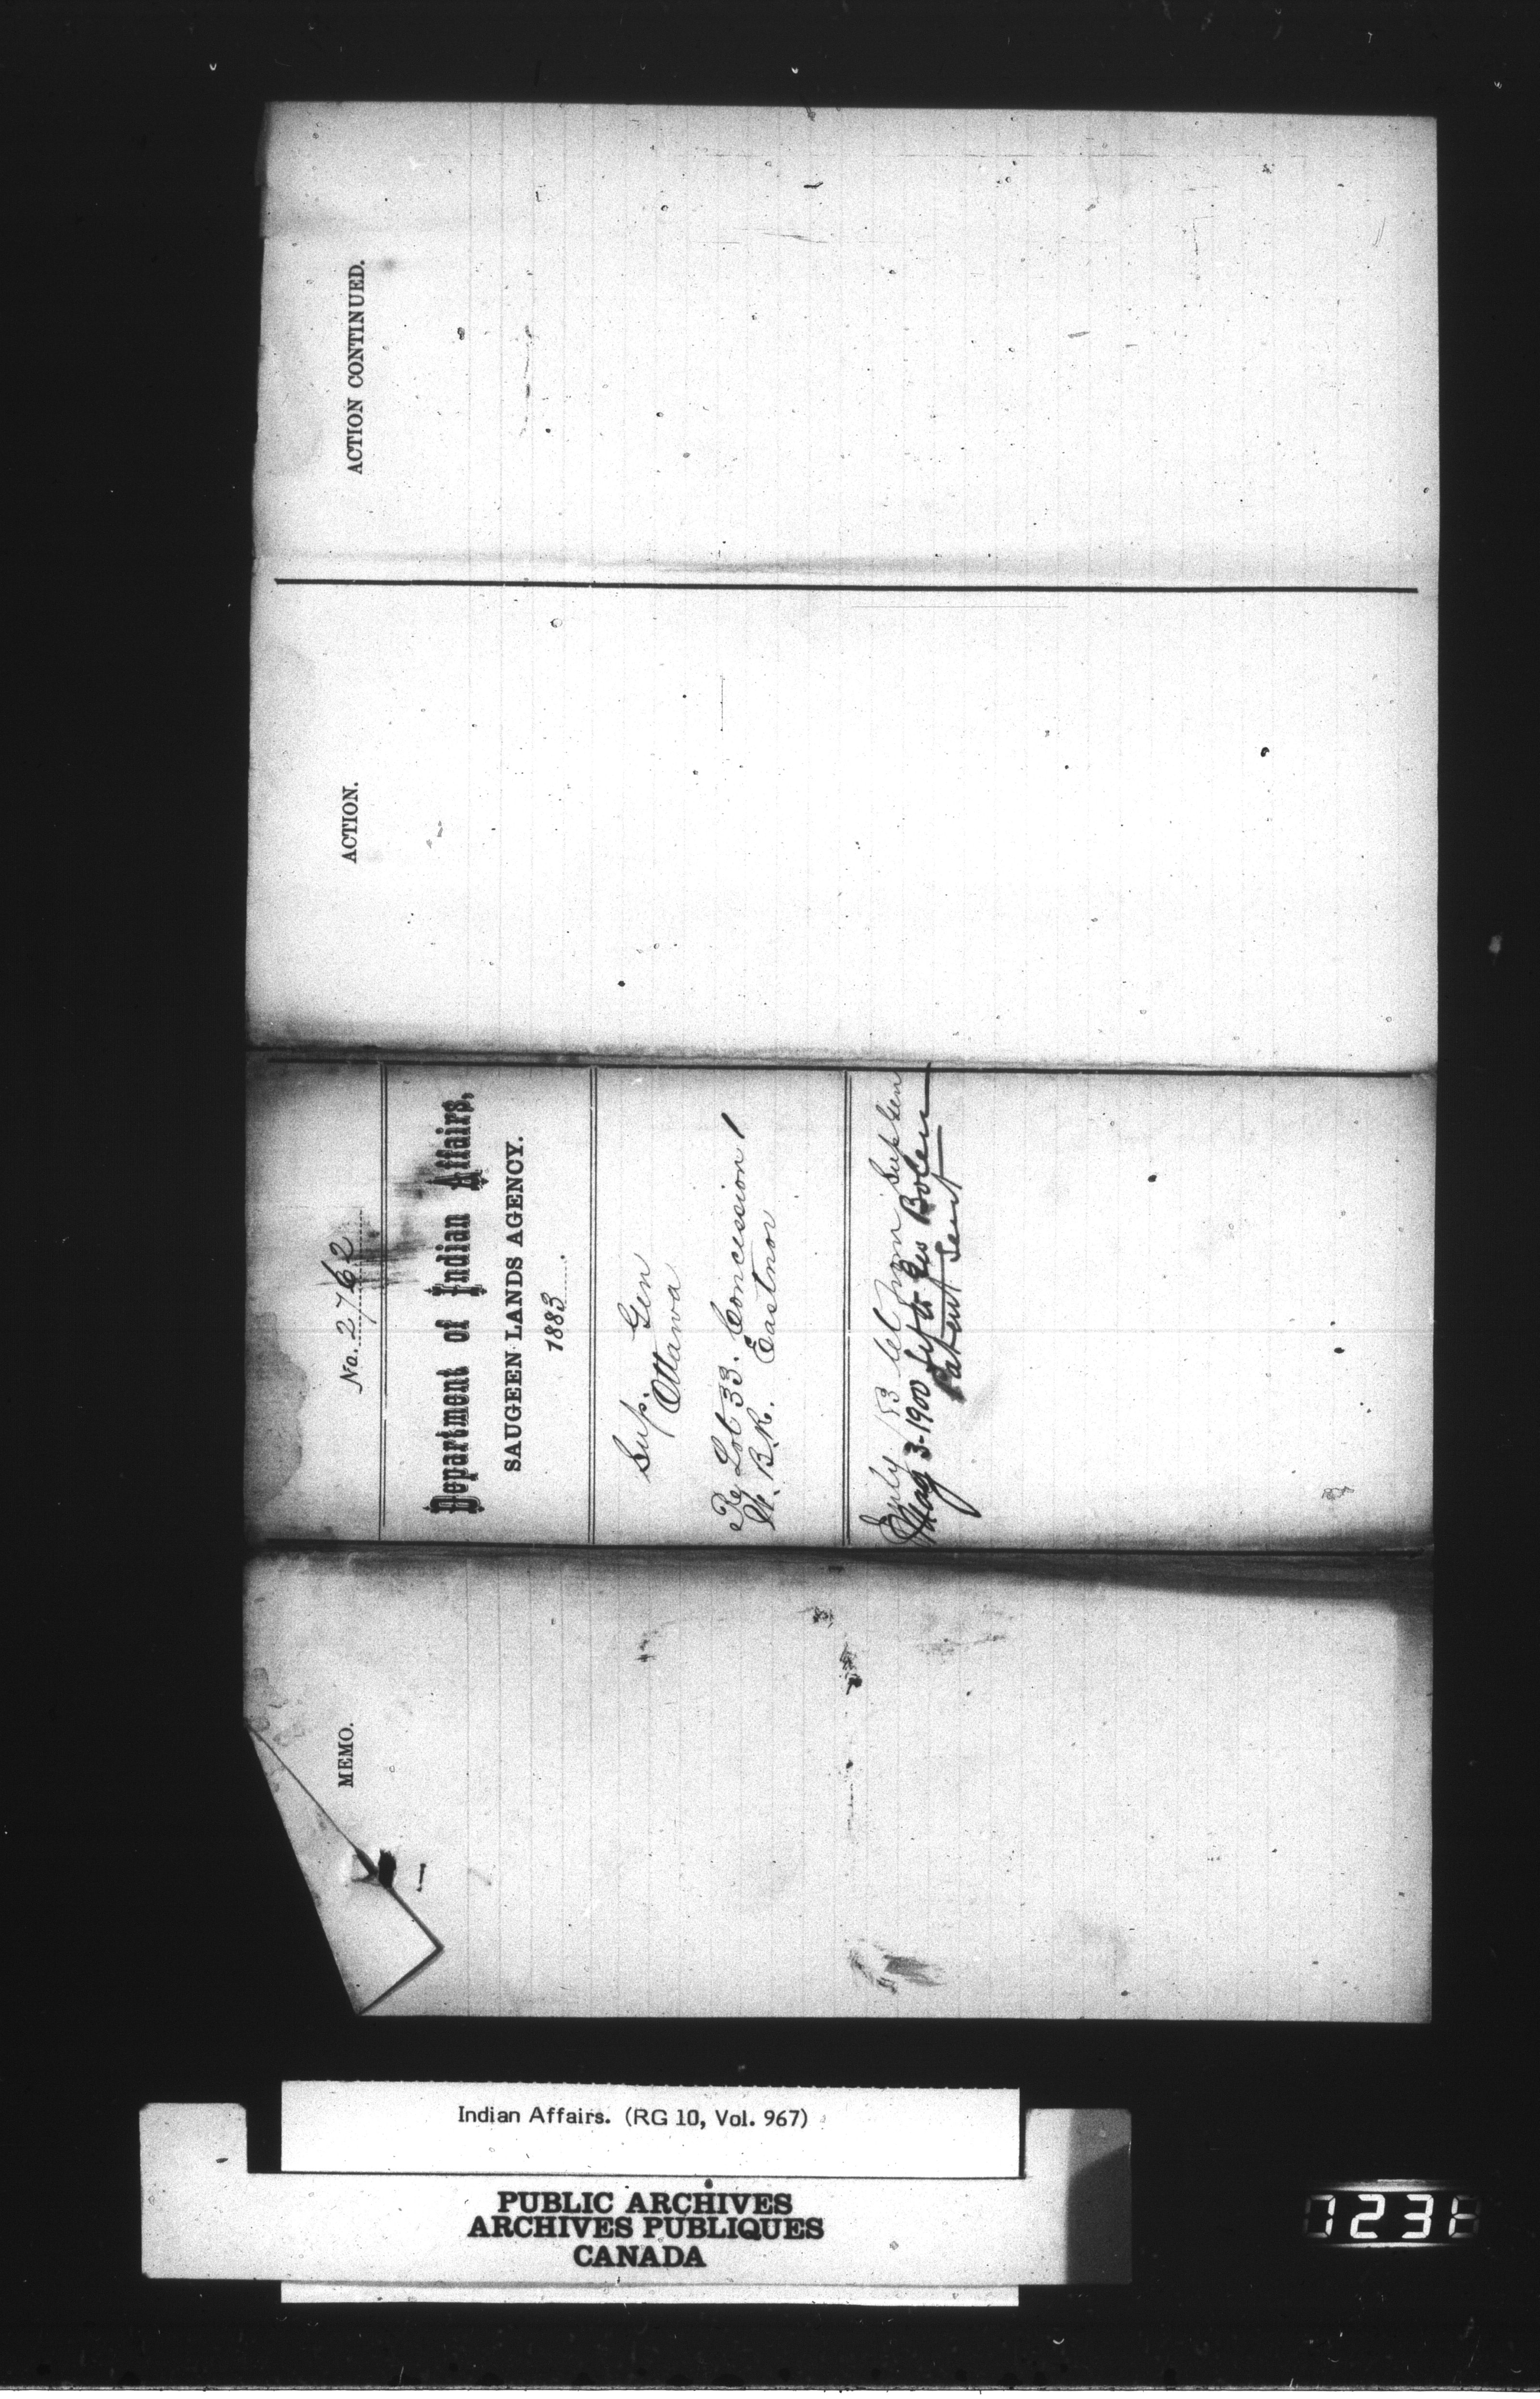 ACTION CONTINUED.
ACTION.
No. 2762
Department of Indian Affairs,
SAUGEEN LANDS AGENCY.
1883
Sup. Gen
Ottawa
Re Lot 33. Concession 1
W. B.R. Eastnor
July /83 let from Sup Gen
May 3-1900 to Geo Bolen
Patent Sent
MEMO.
Indian Affairs. (RG 10, Vol. 967)
PUBLIC ARCHIVES
ARCHIVES PUBLIQUES
CANADA
1231